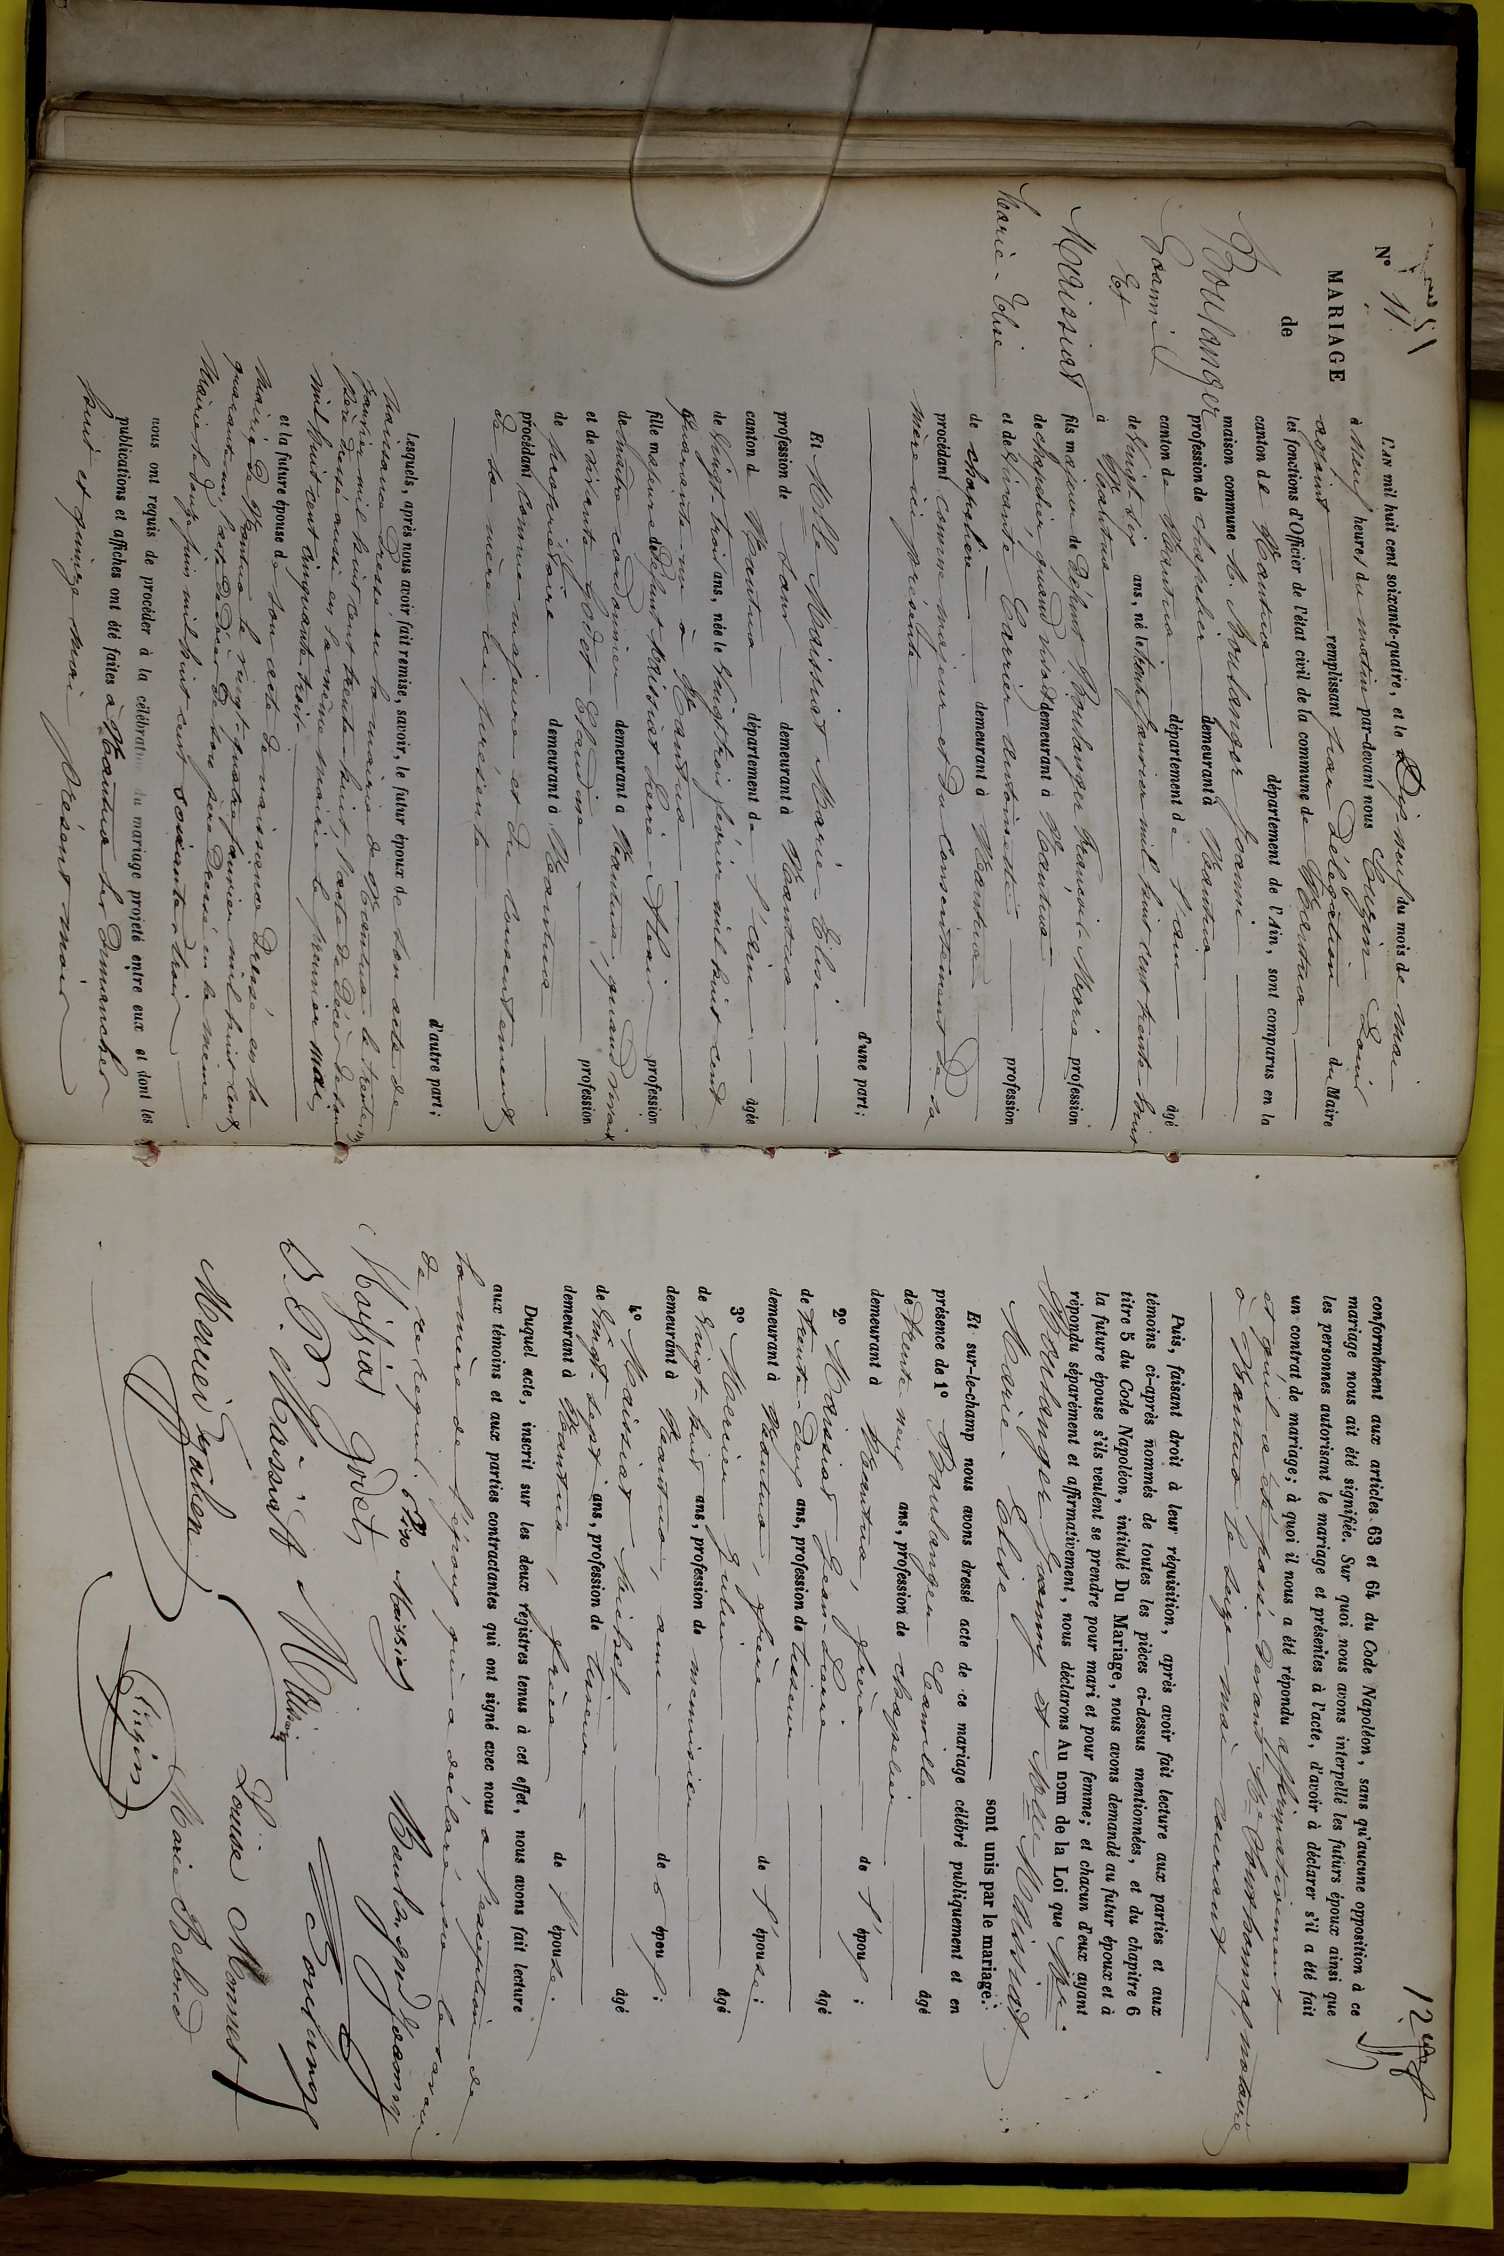 N° 11
MARIAGE
de
Boulanger
Joanni
Et
Maissiat
Marie-Elise
L'AN mil huit cent soixante-quatre, et le Dix-neuf du mois de mai
à neuf heures du matin par-devant nous Eugin Louis
adjoint remplissant par Délégation du Maire
les fonctions d'Officier de l'état civil de la commune de Nantua
canton de Nantua département de l'Ain, sont comparus en la
maison commune M. Boulanger Joanni
profession de chapelier demeurant à Nantua
canton de Nantua département de l'ain âgé
de vingt-six ans, né le trente Janvier mil huit cent trente huit
à Nantua
fils majeur de défunt Boulanger François Marie profession
de chapelier, quand vivait demeurant à Nantua
et de vivante Carrier antoinette profession
de chapelière demeurant à Nantua
procédant comme majeur et du consentement de sa
mère ici présente
d'une part;
Et Melle Maissiat Marie-Elise
profession de demeurant à Nantua
canton de Nantua département de l'ain âgée
de vingt-trois ans, née le vingt trois février mil huit cent
quarante-un à Nantua
fille majeure de défunt Maissiat profession
de demeurant à Nantua, quand vivait
et de vivante Godet Claudine profession
de propriétaire demeurant à Nantua
procédant comme majeure et du consentement
de sa mère ici présente
d'autre part;
Lesquels, après nous avoir fait remise, savoir, le futur époux de son acte de
naissance dressé en la mairie de Nantua le trente un
janvier mil huit cent trente huit, l'acte de décès de son
père dressé aussi en la même mairie le premier mai
mil huit cent cinquante trois
et la future épouse de son acte de naissance dressé en la
mairie de Nantua le vingt-quatre février mil huit cent
quarante un, l'acte de décès de son père dressé en la même
mairie le douze juin mil huit cent soixante trois
nous ont requis de procéder à la célébration du mariage projeté entre eux et dont les
publications et affiches ont été faites à Nantua les dimanches
huit et quinze mai présent mois
12
conformément aux articles 63 et 64 du Code Napoléon, sans qu'aucune opposition à ce
mariage nous ait été signifiée. Sur quoi nous avons interpellé les futurs époux ainsi que
les personnes autorisant le mariage et présentes à l'acte, d'avoir à déclarer s'il a été fait
un contrat de mariage; à quoi il nous a été répondu affirmativement
et qu'il a été passé devant Me notaire
à Nantua le seize mai courant
Puis, faisant droit à leur réquisition, après avoir fait lecture aux parties et aux
témoins ci-après nommés de toutes les pièces ci-dessus mentionnées, et du chapitre 6
titre 5 du Code Napoléon, intitulé Du Mariage, nous avons demandé au futur époux et à
la future épouse s'ils veulent se prendre pour mari et pour femme; et chacun d'eux ayant
répondu séparément et affirmativement, nous déclarons Au nom de la Loi que Mr.
Boulanger Joanny et Melle Maissiat
Marie-Elise sont unis par le mariage.
Et sur-le-champ nous avons dressé acte de ce mariage célébré publiquement et en
présence de 1° Boulanger Camille âgé
de trente neuf ans, profession de chapelier
demeurant à Nantua, frère de l'époux;
2° Maissiat Jean-Pierre âgé
de trente-deux ans, profession de tisseur
demeurant à Nantua, frère de l'épouse;
3° Mercier Julien âgé
de vingt-huit ans, profession de menuisier
demeurant à Nantua, ami de l'époux;
4° Maissiat Michel âgé
de vingt-sept ans, profession de tisseur
demeurant à Nantua, frère de l'épouse.
Duquel acte, inscrit sur les deux registres tenus à cet effet, nous avons fait lecture
aux témoins et aux parties contractantes qui ont signé avec nous à l'exception de
la mère de l'époux qui a déclaré ne le savoir
de ce requise. Elise Maissiat Boulanger Joanny
Maissiat Godet
J. P. Maissiat Maissiat Boulanger
Louise Monnet
Mercier Julien Marie
Eugin